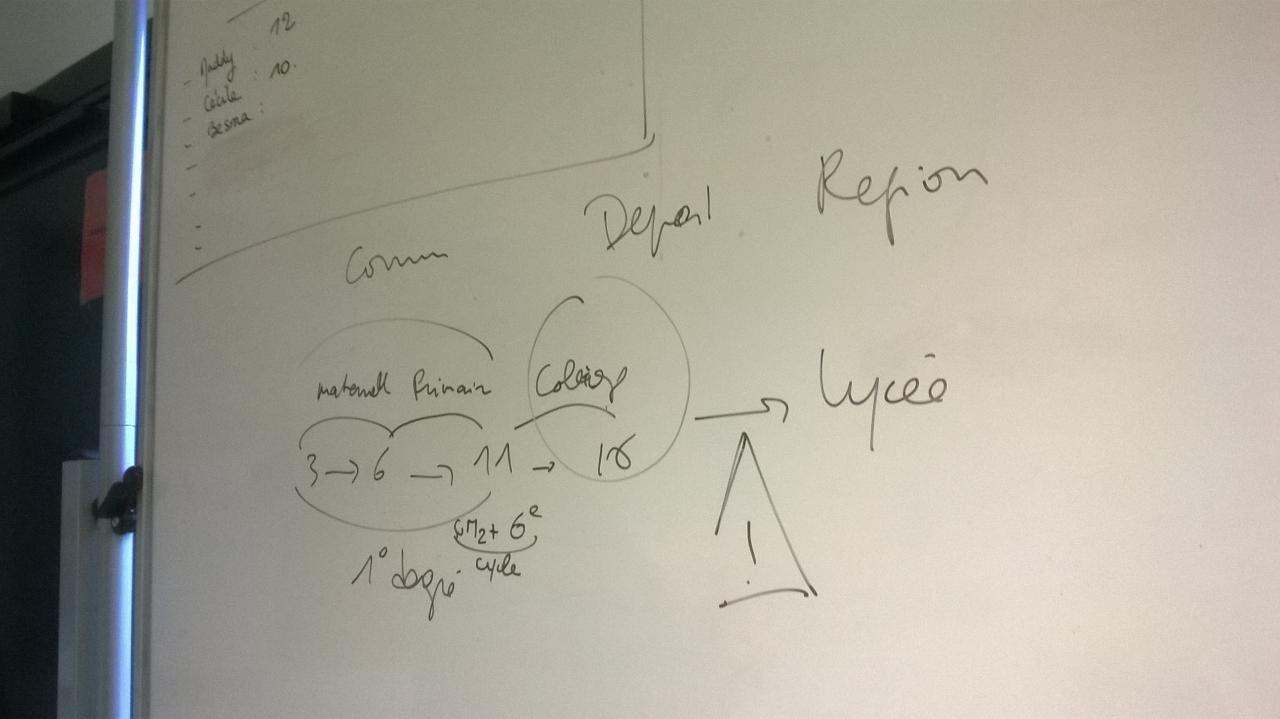 12
- Maddy : 10.
- Cécile :
- Besma :
-
-
-
-
Comm
Depart
Region
maternell Primair College
Lycée
3 → 6 → 11 → 16
!
CM2 + 6e
cycle
1° degré